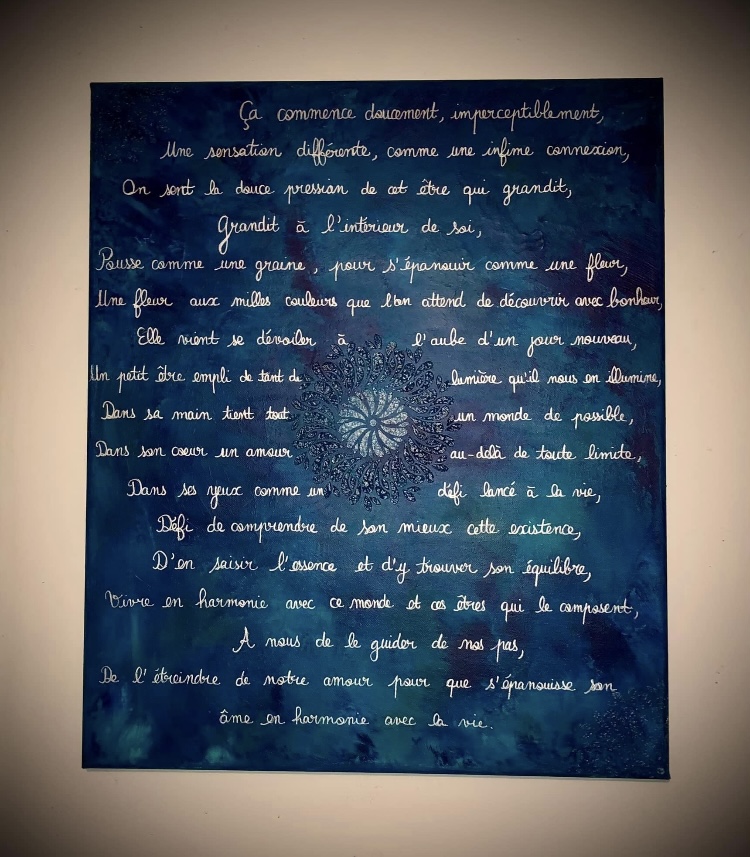 Ça commence doucement, imperceptiblement,
Une sensation différente, comme une infime connexion,
On sent la douce pression de cet être qui grandit,
Grandit à l'intérieur de soi,
Pousse comme une graine, pour s'épanouir comme une fleur,
Une fleur aux milles couleurs que l'on attend de découvrir avec bonheur,
Elle vient se dévoiler à l'aube d'un jour nouveau,
Un petit être empli de tant de lumière qu'il nous en illumine,
Dans sa main tient tout un monde de possible,
Dans son coeur un amour au-delà de toute limite,
Dans ses yeux comme un défi lancé à la vie,
Défi de comprendre de son mieux cette existence,
D'en saisir l'essence et d'y trouver son équilibre,
Vivre en harmonie avec ce monde et ces êtres qui le composent,
A nous de le guider de nos pas,
De l'étreindre de notre amour pour que s'épanouisse son
âme en harmonie avec la vie.